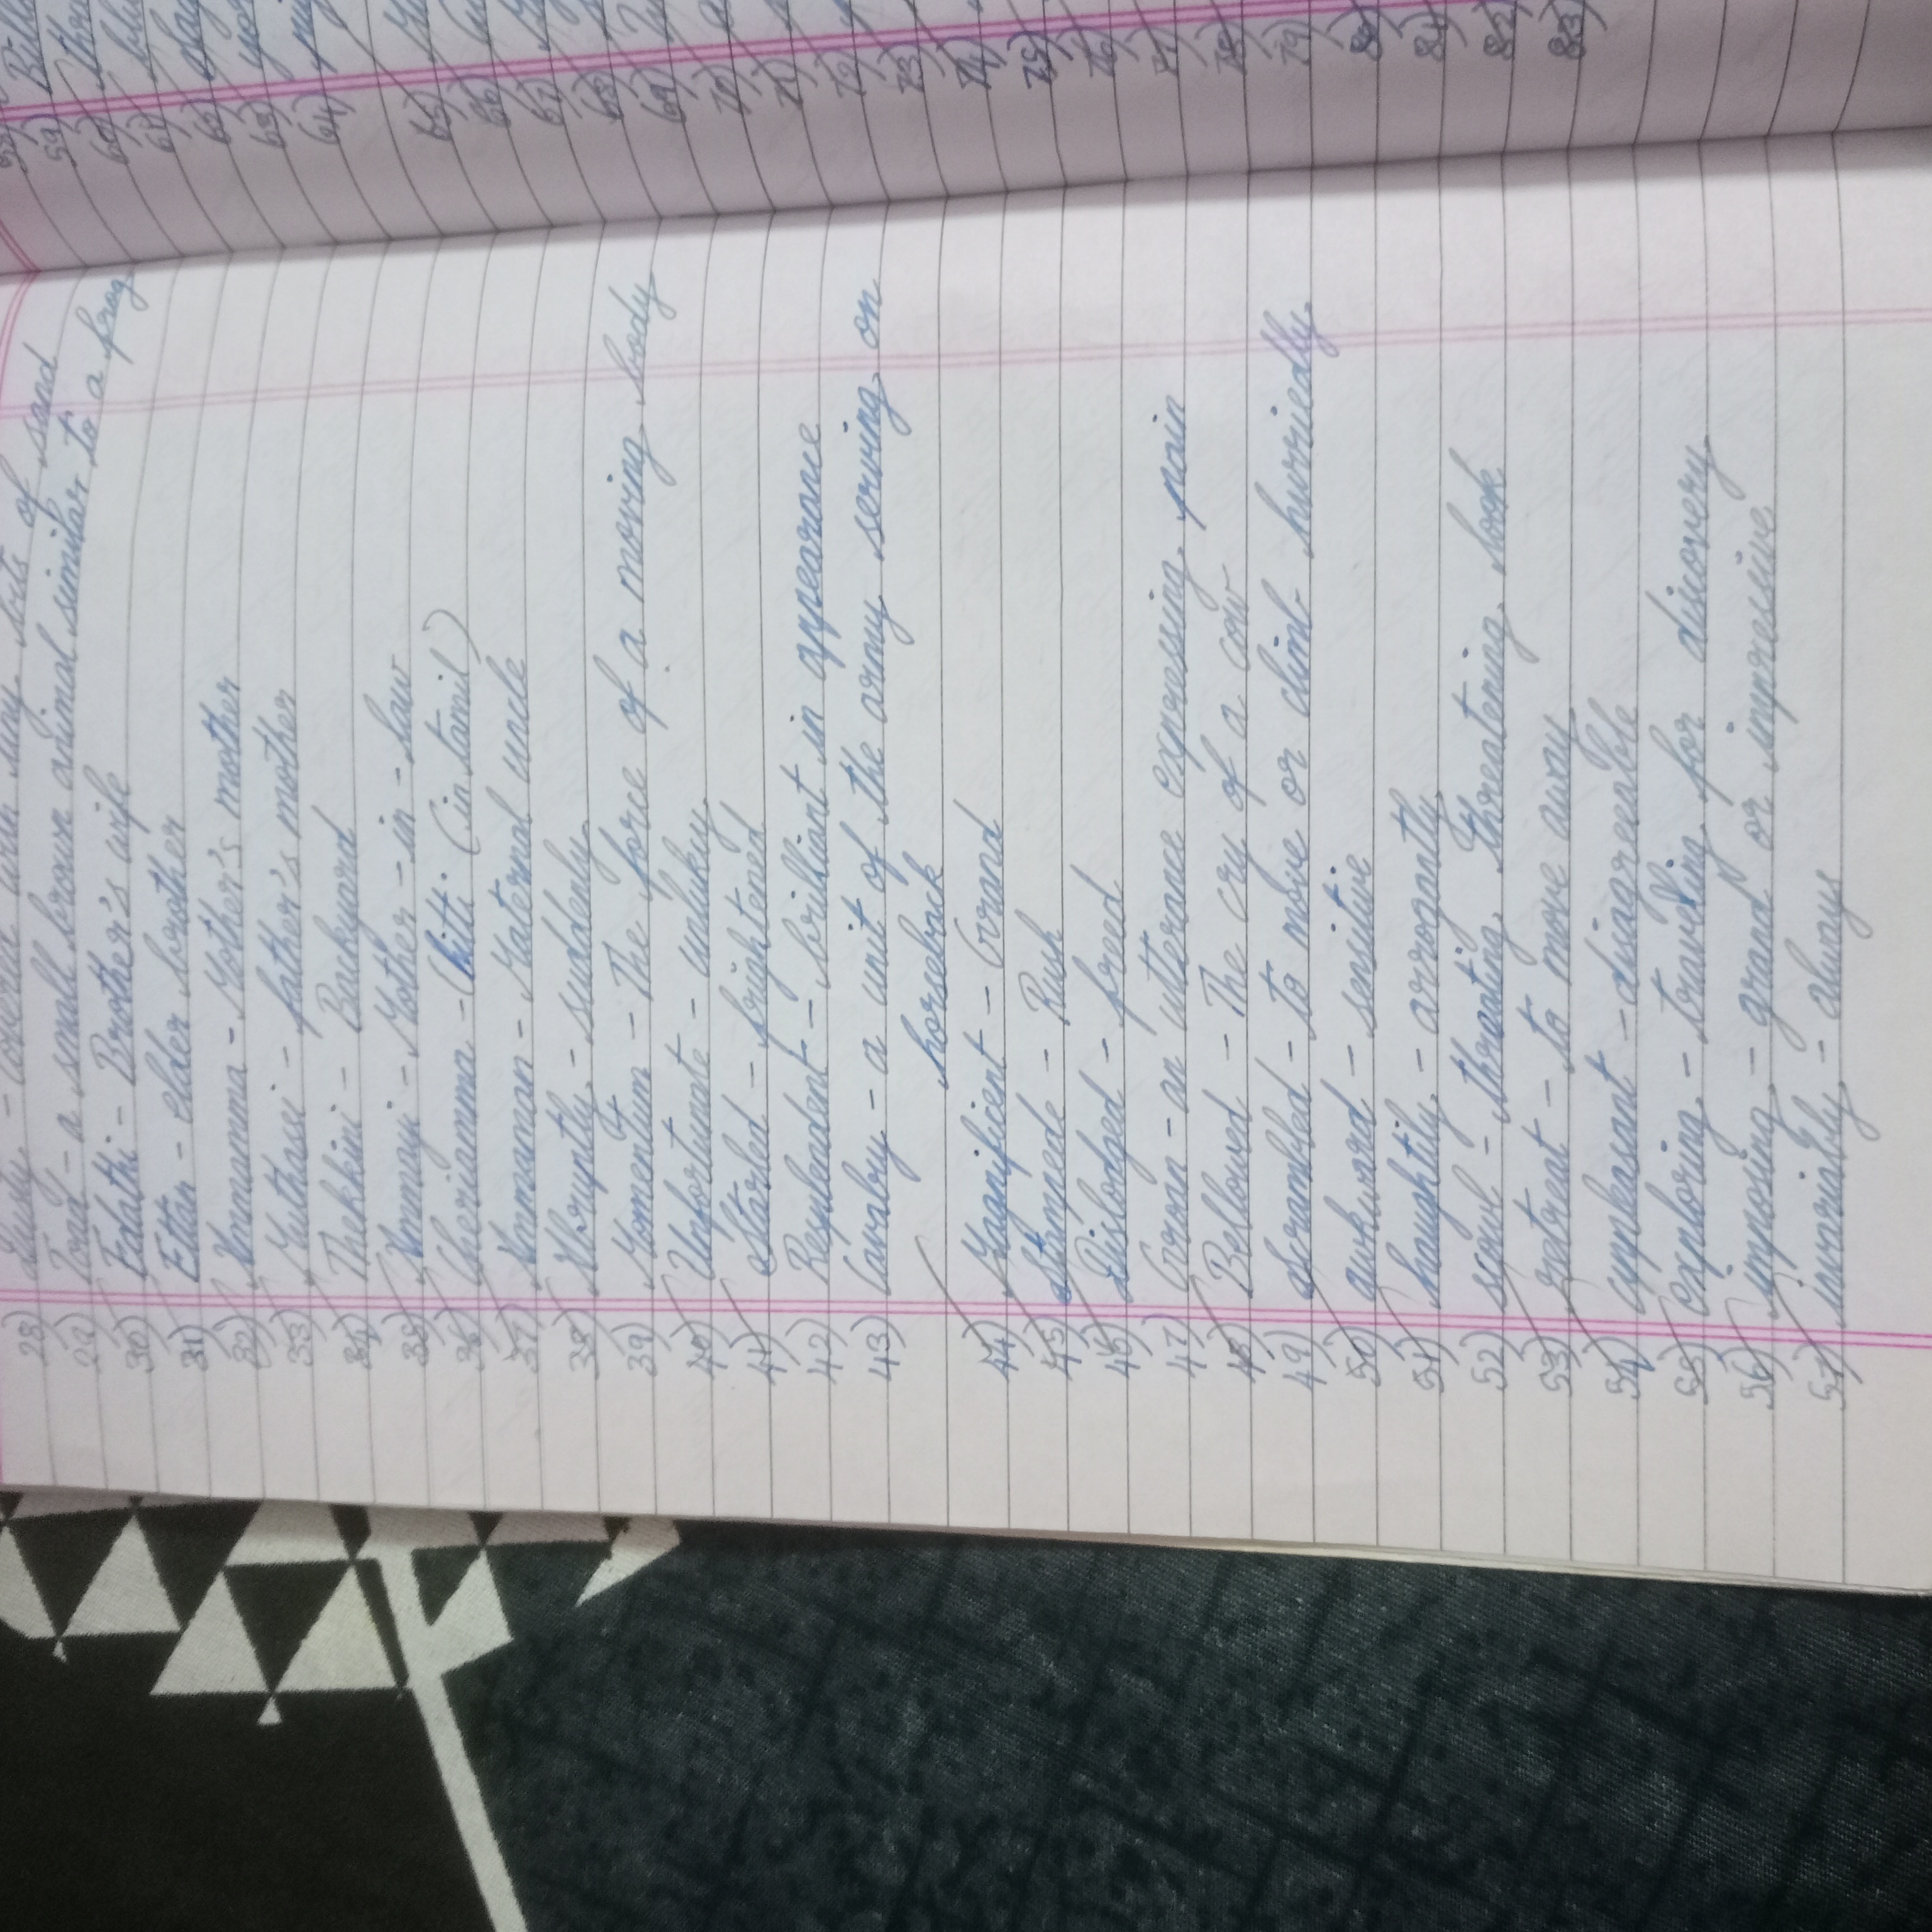 28) Dusty - covered with tiny bits of sand
29) Toad - a small brown animal similar to a frog
30) Edathi - Brother's wife
31) Ettan - elder brother
32) Ammamma - Mother's mother
33) Muthasi - father's mother
34) Thekkini - Backyard
35) Ammayi - Mother - in - law
36) Cheriamma - Chitti (in tamil)
37) Ammaman - Maternal uncle
38) Abruptly - suddenly
39) Momentum - The force of a moving body
40) Unfortunate - unluky
41) Startled - frightened
42) Resplendent - brilliant in appearance
43) Cavalry - a unit of the army serving on
horseback
44) Magnificent - Grand
45) Stampede - Rush
46) Dislodged - freed
47) Groan - an utterance expressing pain
48) Bellowed - The cry of a cow
49) scrambled - to move or climb hurriedly
50) awkward - sensitive
51) haughtily - arrogantly
52) scowl - threating, threatening look
53) retreat - to move away
54) unpleasant - disagreeable
55) exploring - travelling for discovery
56) imposing - grand or impressive
57) invariably - always
59)
60)
61)
62)
63)
64)
65)
66)
67)
68)
69)
70)
71)
72)
73)
74)
75)
76)
77)
78)
79)
80)
81)
82)
83)